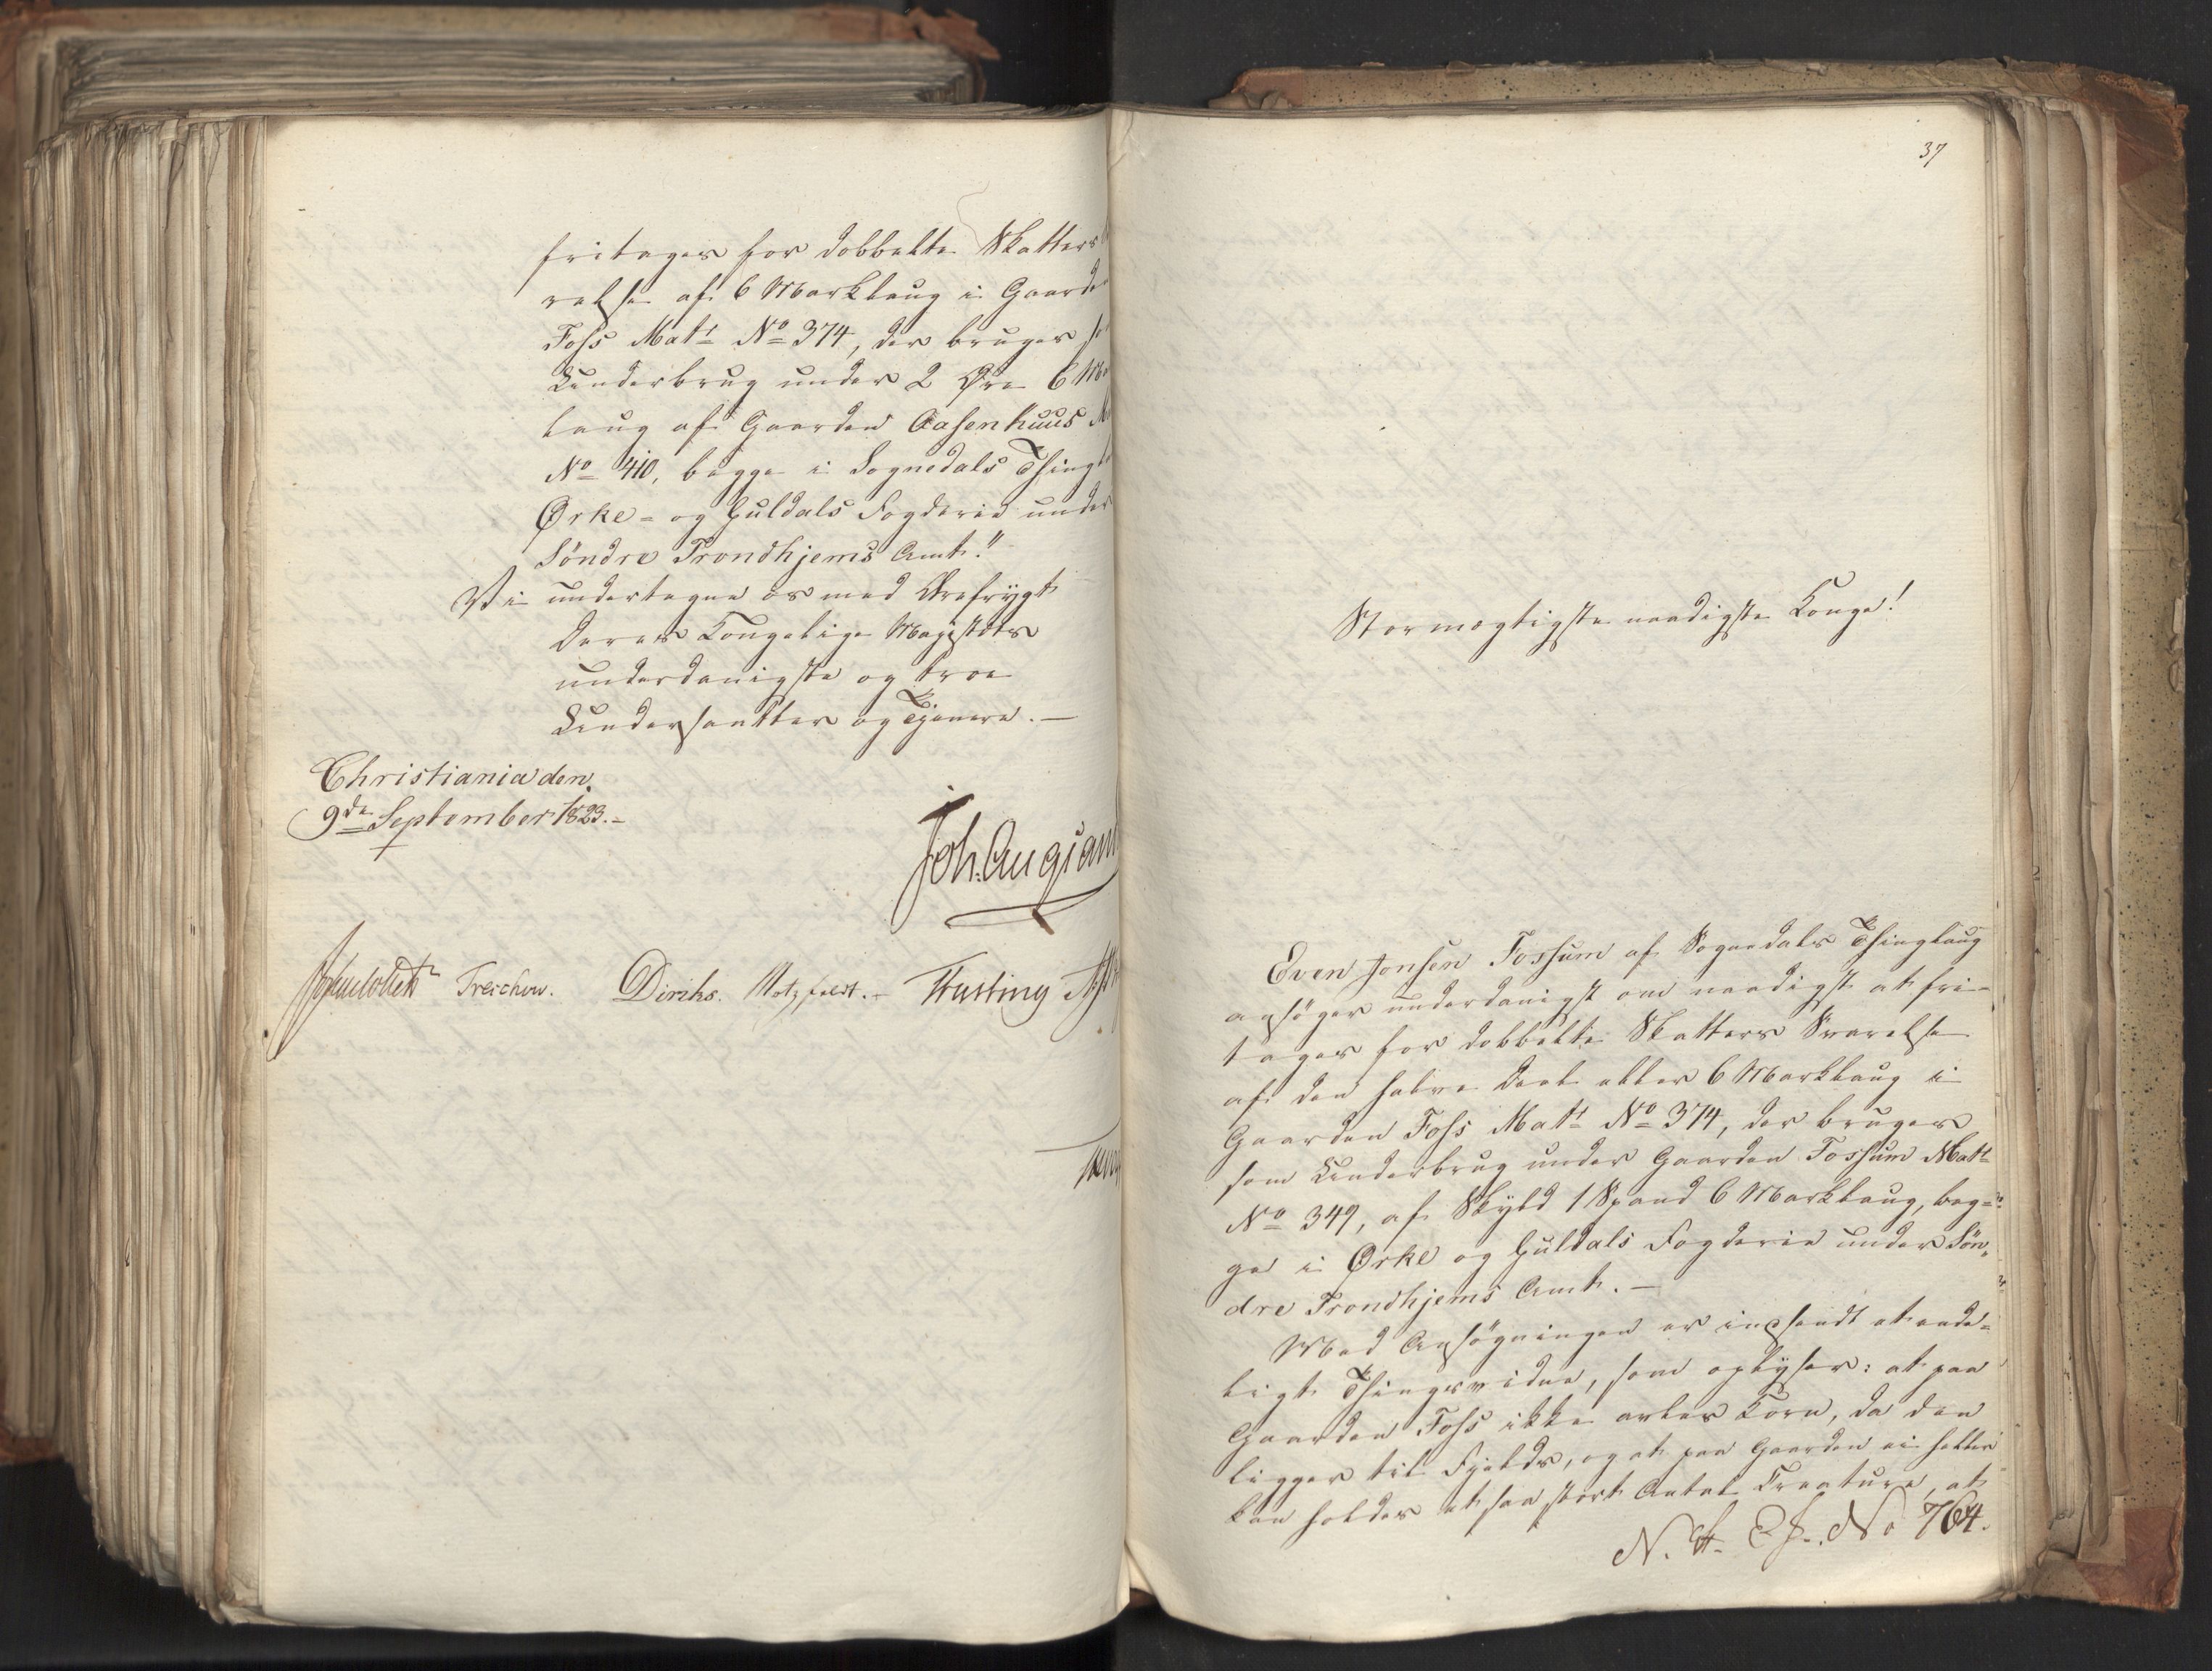 fritages for dobbelte Skatters
relse af 6 Marklaug i Gaarden
Foss Matr No 374, der bruges so
Underbrug under 2 Øre 6 Ma
laug af Gaarden Aasenhuus
No 410, begge i Sognedals Thingl
Ørke- og Guldals Fogderie under
Söndre Trondhjems Amt."
Vi undertegne os med Ærefrygt
Deres Kongelige Majestæts
underdanigste og troe
Undersaatter og Tjenere.—
Christiania den
9de September 1823.—
Joh. Aug Sand
Treschow. Diriks. Motzfeldt.— Fasting
37
Stormægtigste naadigste Konge!
Even Jonsen Fossum af Sognedals Thinglaug
ansöger underdanigst om naadigst at fri-
tages for dobbelte Skatters Svarelse
af den halve Deel eller 6 Marklaug i
Gaarden Foss Matr No 374, der bruges
som Underbrug under Gaarden Fossum Matr
No 349, af Skyld 1 Spand 6 Marklaug, beg-
ge i Ørke og Guldals Fogderie under Sön„
dre Trondhjems Amt.—
Med Ansögningen er indsendt et eede-
ligt Thingsvidne, som oplyser: at paa
Gaarden Foss ikke avles Korn, da den
ligger til Fjelds, og at paa Gaarden ei heller
kan holdes et saa stort Antal Creature, at
No 764.